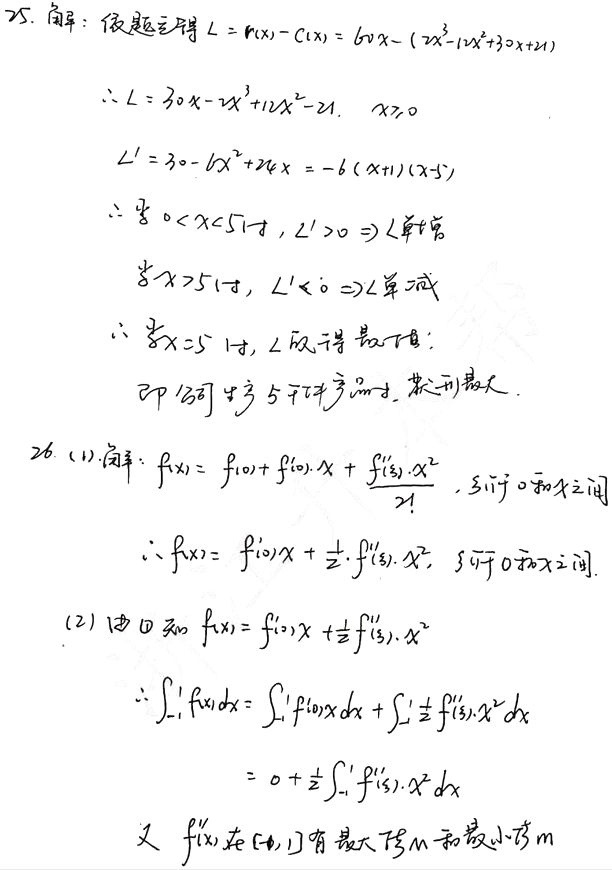 25. 解: 依题意得 L = r(x) - C(x) = 60x - (2x³-12x²+30x+21)
∴ L = 30x - 2x³ + 12x² - 21. x≥0
L' = 30 - 6x² + 24x = -6(x+1)(x-5)
∴ 当 0<x<5时, L'>0 => L单增
当x>5时, L'<0 => L单减
∴ 当x=5时, L取得最大值;
即公司生产5千件产品时, 获利最大.
26. (1).解: f(x) = f(0) + f'(0)·x + f''(ξ)·x²/2! , ξ介于0和x之间
∴ f(x) = f'(0)x + ½·f''(ξ)·x², ξ介于0和x之间.
(2) 由①知 f(x) = f'(0)x + ½f''(ξ)·x²
∴ ∫₋₁¹ f(x)dx = ∫₋₁¹ f'(0)xdx + ∫₋₁¹ ½ f''(ξ)·x²dx
= 0 + ½∫₋₁¹ f''(ξ)·x²dx
又 f''(x)在[-1,1]有最大值M和最小值m